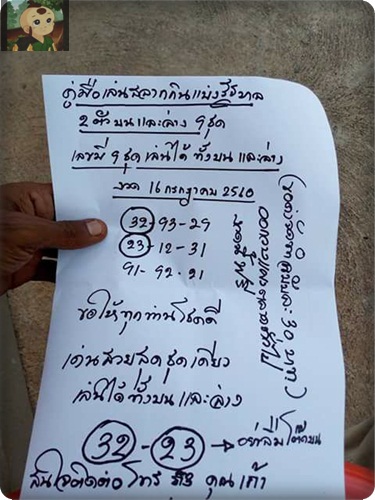 คู่มือเล่นสลากกินแบ่งรัฐบาล
2 ตัวบนและล่าง 9 ชุด
เลขมี 9 ชุด เล่นได้ ทั้งบน และล่าง
งวด 16 กรกฎาคม 2560
32-93-29
23-12-31
91-92-21
ขอให้ทุกท่านโชคดี
เด่นสวยสุดชุดเดียว
เล่นได้ทั้งบนและล่าง
32-23 → อย่าลืมโต๊ดบน
สนใจติดต่อ โทร คุณเก้า
30 บาท)